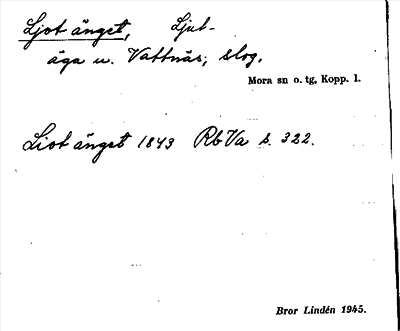 Ljotänget, Ljut-
äga u. Vattnäs; slog.
Mora sn o. tg, Kopp. l.
Liotänget 1843 RbVa s. 322.
Bror Lindén 1945.